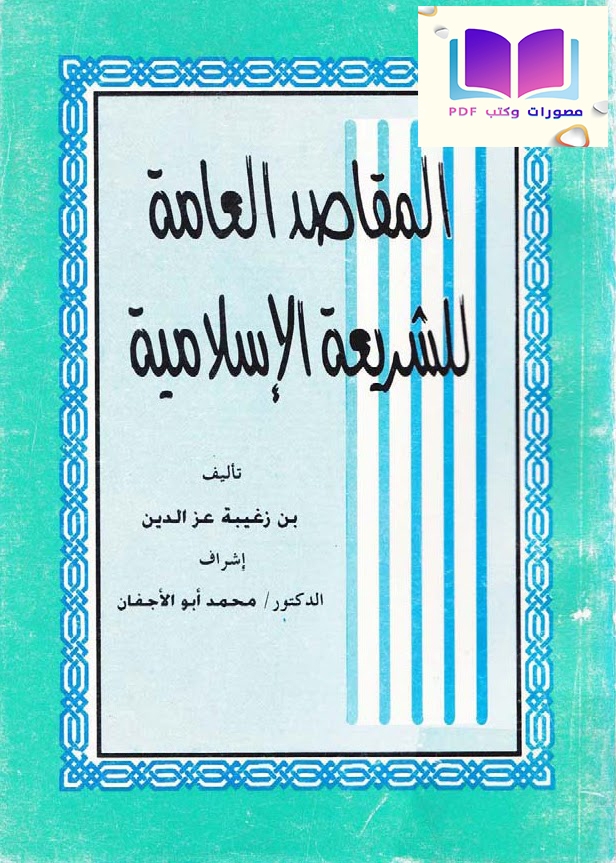 مصورات وكتب PDF
المقاصد العامة
للشريعة الإسلامية
تأليف
بن زغيبة عز الدين
إشراف
الدكتور / محمد أبو الأجفان